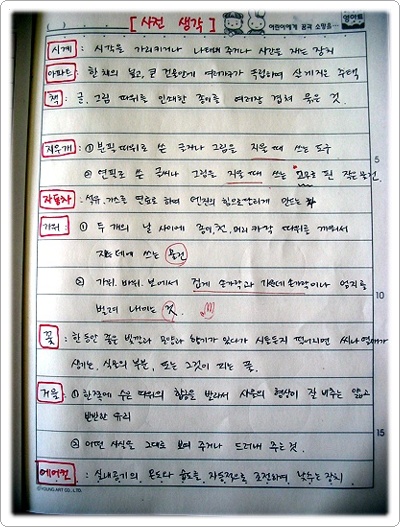 [사전 생각]
어린이에게 꿈과 소망을…
영아트
시계 : 시각을 가리키거나 나타내 주거나 시간을 재는 장치
아파트 : 한 채의 높고, 큰 건물안에 여러가구가 독립하여 살게지은 주택
책 : 글, 그림 따위를 인쇄한 종이를 여러장 겹쳐 묶은 것.
지우개 : ① 분필 따위로 쓴 글자나 그림을 지울 때 쓰는 도구
5
② 연필로 쓴 글씨나 그림을 지울 때 쓰는 고무로 된 작은 물건.
자동차 : 석유, 가스를 연료로 하여 엔진의 힘으로 달리게 만드는 차
가위 : ① 두 개의 날 사이에 종이, 천, 머리카락 따위를 끼워서
자르는데에 쓰는 물건
② 가위. 바위. 보에서 집게 손가락과 가운데 손가락이나 엄지를
10
벌려 내미는 것.
꽃 : 한동안 좋은 빛깔과 모양과 향기가 있다가 시들든지 떨어지면 씨나 열매가
생기는, 식물의 부분, 또는 그것이 피는 풀.
거울 : ① 한쪽에 수은 따위의 칠을 발라서 사물의 형상이 잘 비추는 얇고
반반한 유리
15
② 어떤 사실을 그대로 보여 주거나 드러내 주는 것.
에어컨 : 실내공기의 온도와 습도를, 자동적으로 조절하여, 낮추는 장치
©YOUNG ART CO., LTD.